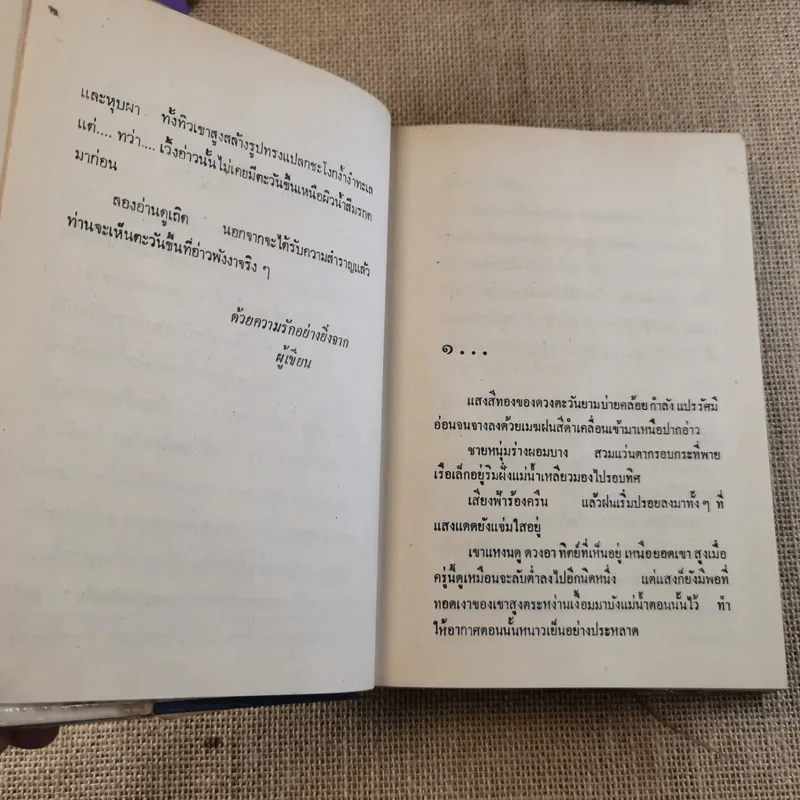 และหุบผา ทั้งทิวเขาสูงสล้างรูปทรงแปลกชะโงกง้ำงำทะเล
แต่.... ทว่า.... เวิ้งอ่าวนั้นไม่เคยมีตะวันขึ้นเหนือผิวน้ำสีมรกต
มาก่อน
ลองอ่านดูเถิด นอกจากจะได้รับความสำราญแล้ว
ท่านจะเห็นตะวันขึ้นที่อ่าวพังงาจริง ๆ
ด้วยความรักอย่างยิ่งจาก
ผู้เขียน
๑...
แสงสีทองของดวงตะวันยามบ่ายคล้อย กำลัง แปร รัศมี
อ่อนจนจางลงด้วยเมฆฝนสีดำเคลื่อนเข้ามาเหนือปากอ่าว
ชายหนุ่มร่างผอมบาง สวมแว่นตากรอบกระที่พาย
เรือเล็กอยู่ริมฝั่งแม่น้ำเหลียวมองไปรอบทิศ
เสียงฟ้าร้องครืน แล้วฝนเริ่มปรอยลงมาทั้ง ๆ ที่
แสงแดดยังแจ่มใสอยู่
เขาแหงนดู ดวงอา ทิตย์ที่เห็นอยู่ เหนือยอดเขา สูงเมื่อ
ครู่นี้ดูเหมือนจะลับต่ำลงไปอีกนิดหนึ่ง แต่แสงก็ยังมีพอที่
ทอดเงาของเขาสูงตระหง่านเงื้อมมาบังแม่น้ำตอนนั้นไว้ ทำ
ให้อากาศตอนนั้นหนาวเย็นอย่างประหลาด